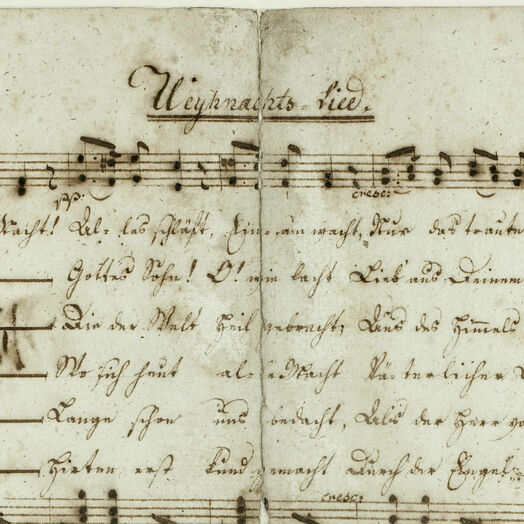 Weyhnachts-Lied.
pp. cresc:
Nacht! Al-les schläft, Ein-sam wacht, Nur das traute
Gottes Sohn! O! wie lacht Lieb' aus Deinem
Die der Welt Heil gebracht; Aus des Himmels
Wo sich heut al-le Macht Vä-terlicher
Lange schon uns bedacht, Als der Herr vo
Hirten erst kund gemacht Durch der Engel
cresc: